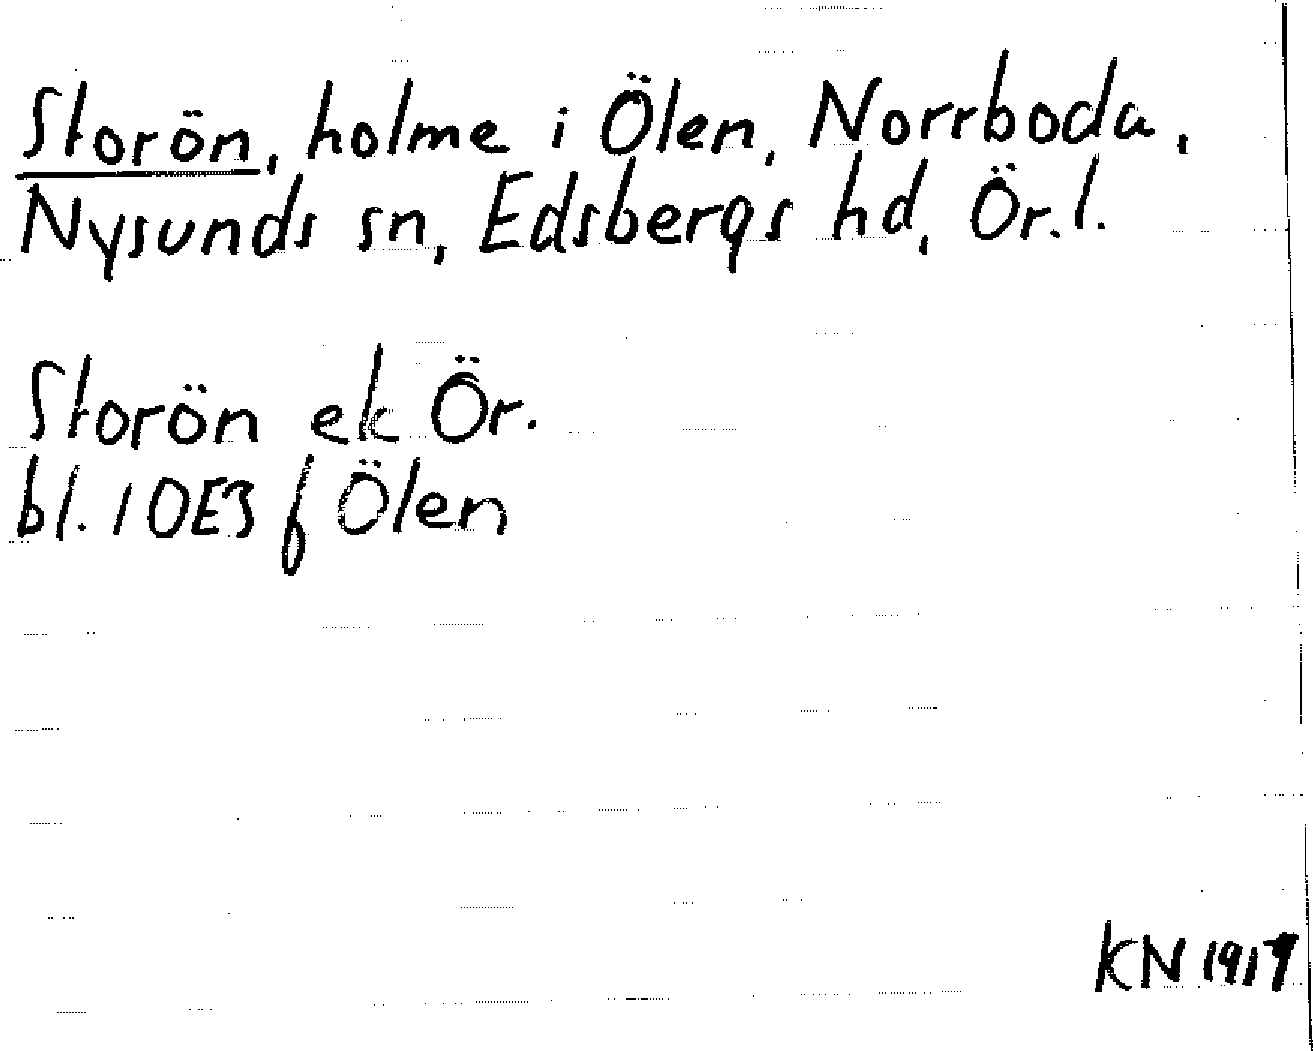 Storön, holme i Ölen, Norrboda,
Nysunds sn, Edsbergs hd, Ör.l.
Storön ek Ör.
bl. 10E3 f Ölen
KN